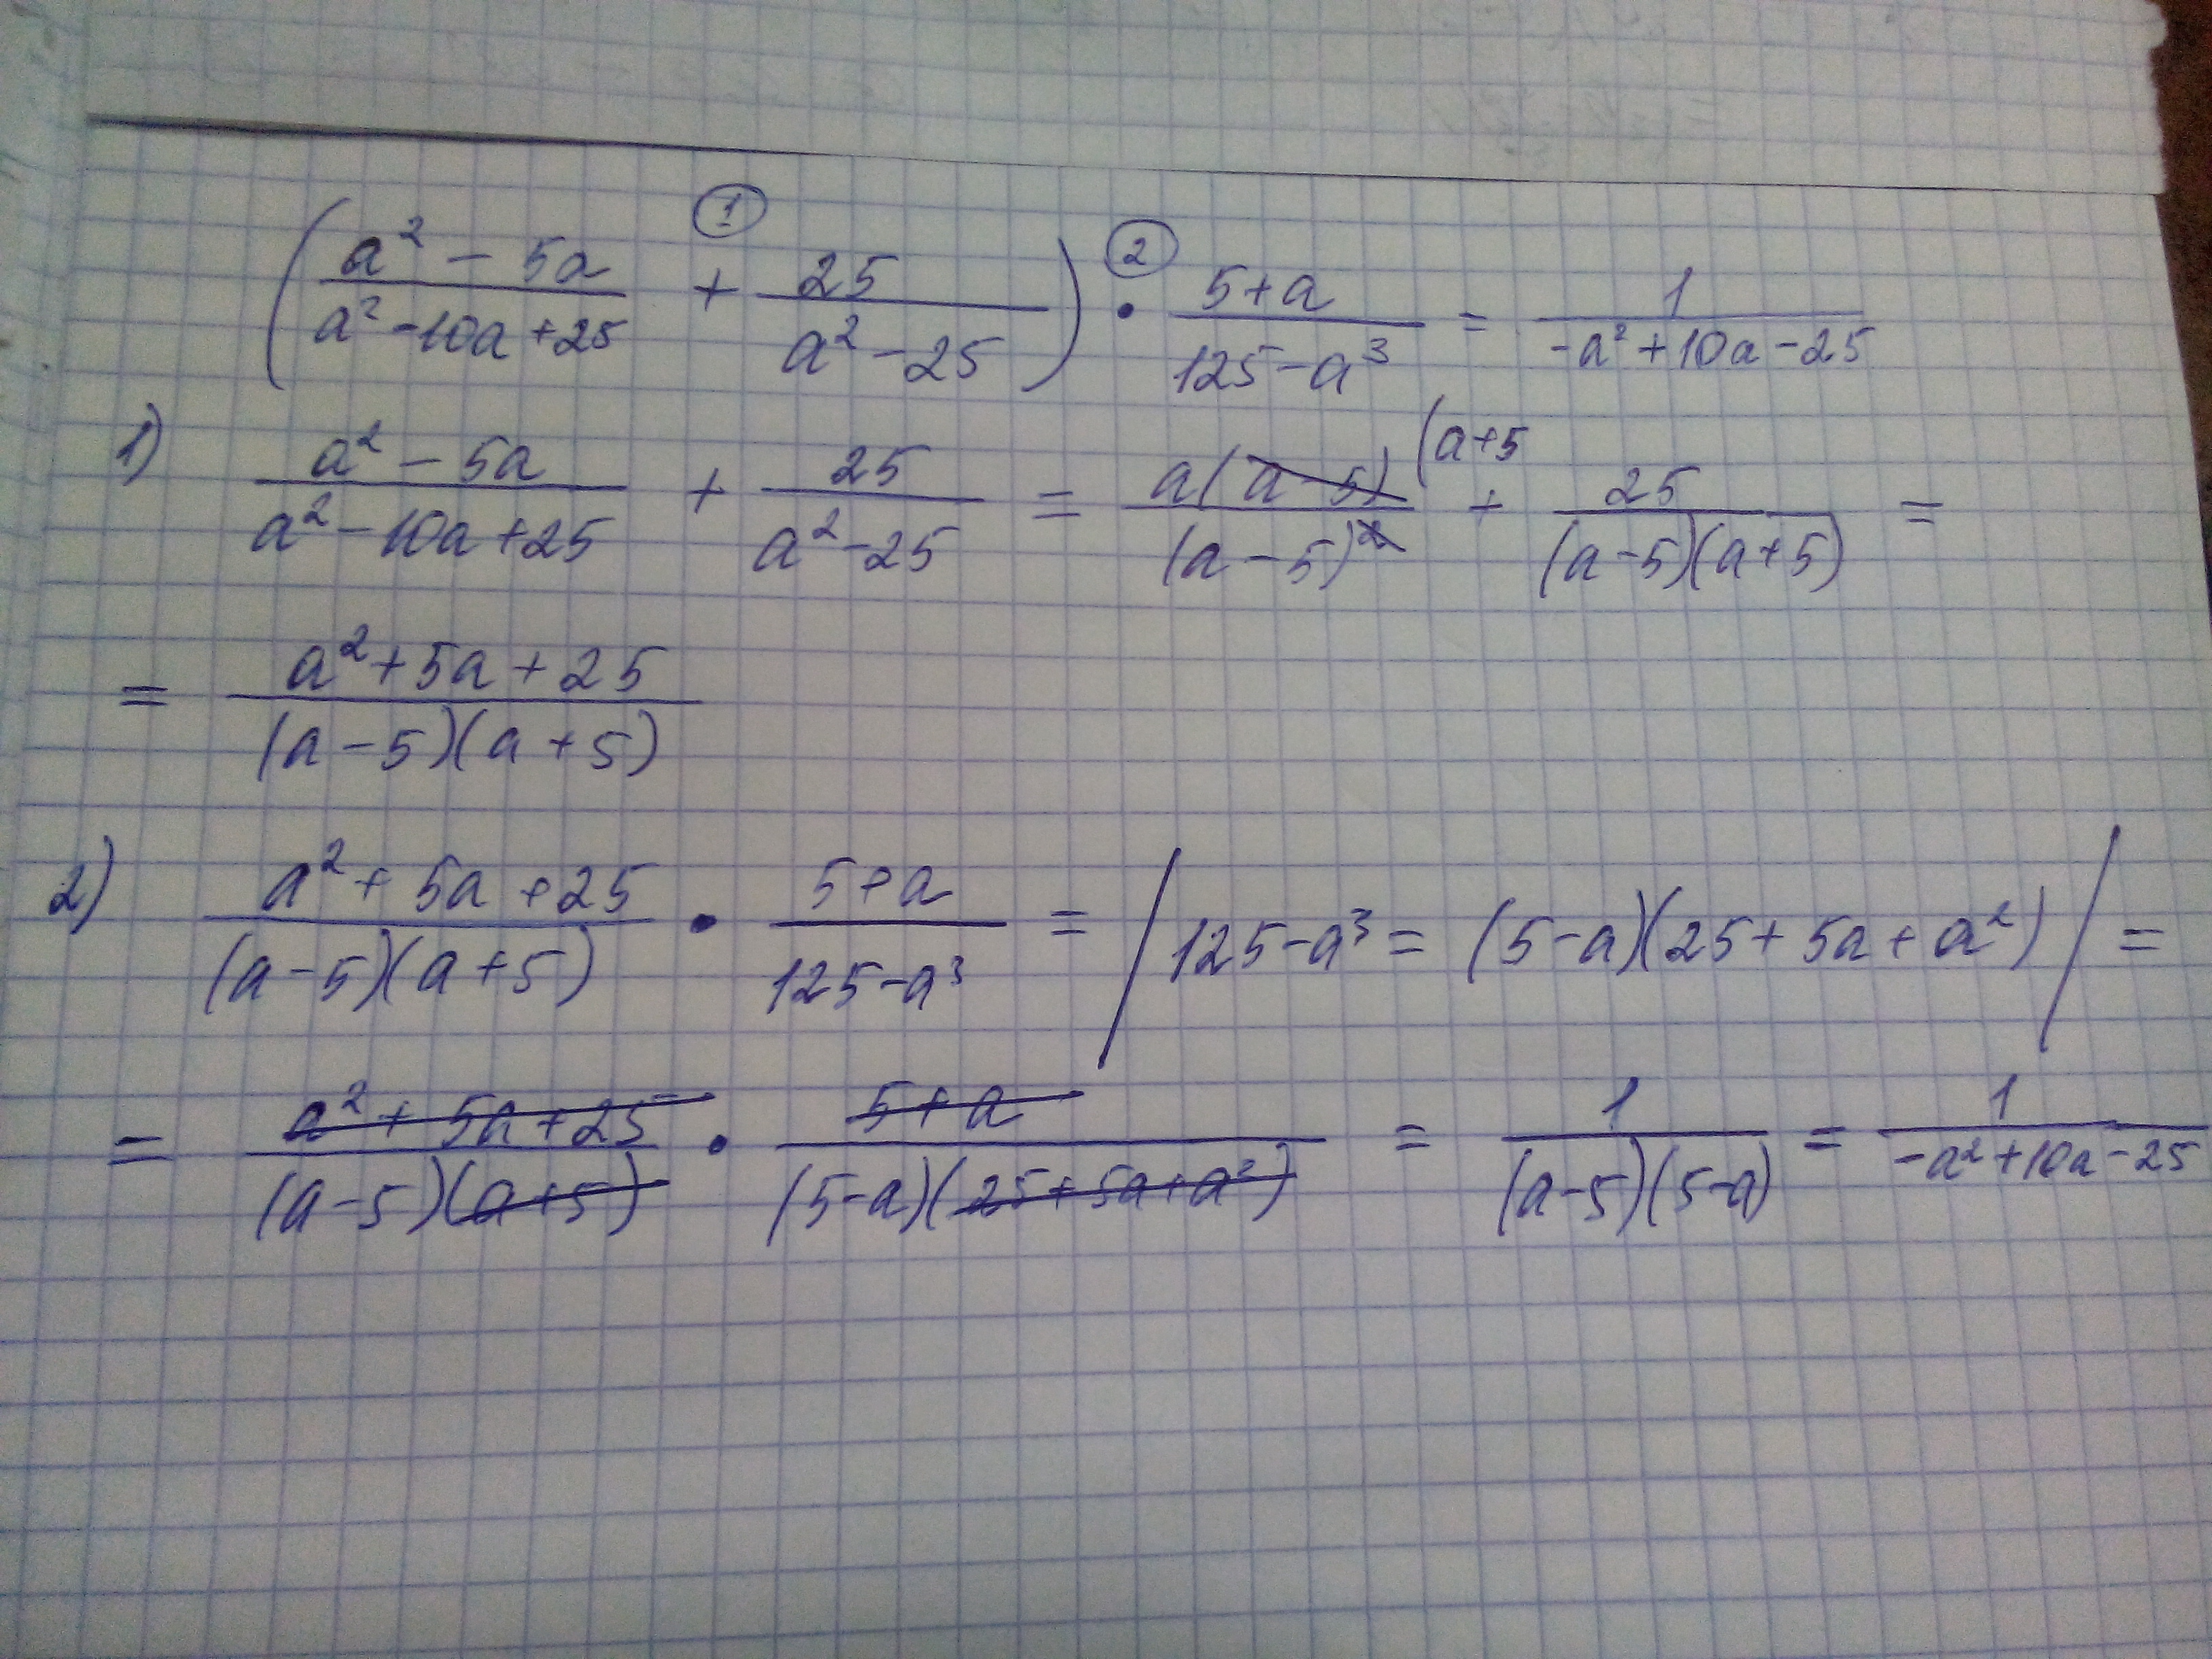 ① ②
(a² - 5a / a² - 10a + 25 + 25 / a² - 25) · 5 + a / 125 - a³ = 1 / -a² + 10a - 25
1) a² - 5a / a² - 10a + 25 + 25 / a² - 25 = a(a - 5) (a+5 / (a - 5)² + 25 / (a - 5)(a + 5) =
= a² + 5a + 25 / (a - 5)(a + 5)
2) a² + 5a + 25 / (a - 5)(a + 5) · 5 + a / 125 - a³ = / 125 - a³ = (5 - a)(25 + 5a + a²) / =
= a² + 5a + 25 / (a - 5)(a + 5) · 5 + a / (5 - a)(25 + 5a + a²) = 1 / (a - 5)(5 - a) = 1 / -a² + 10a - 25